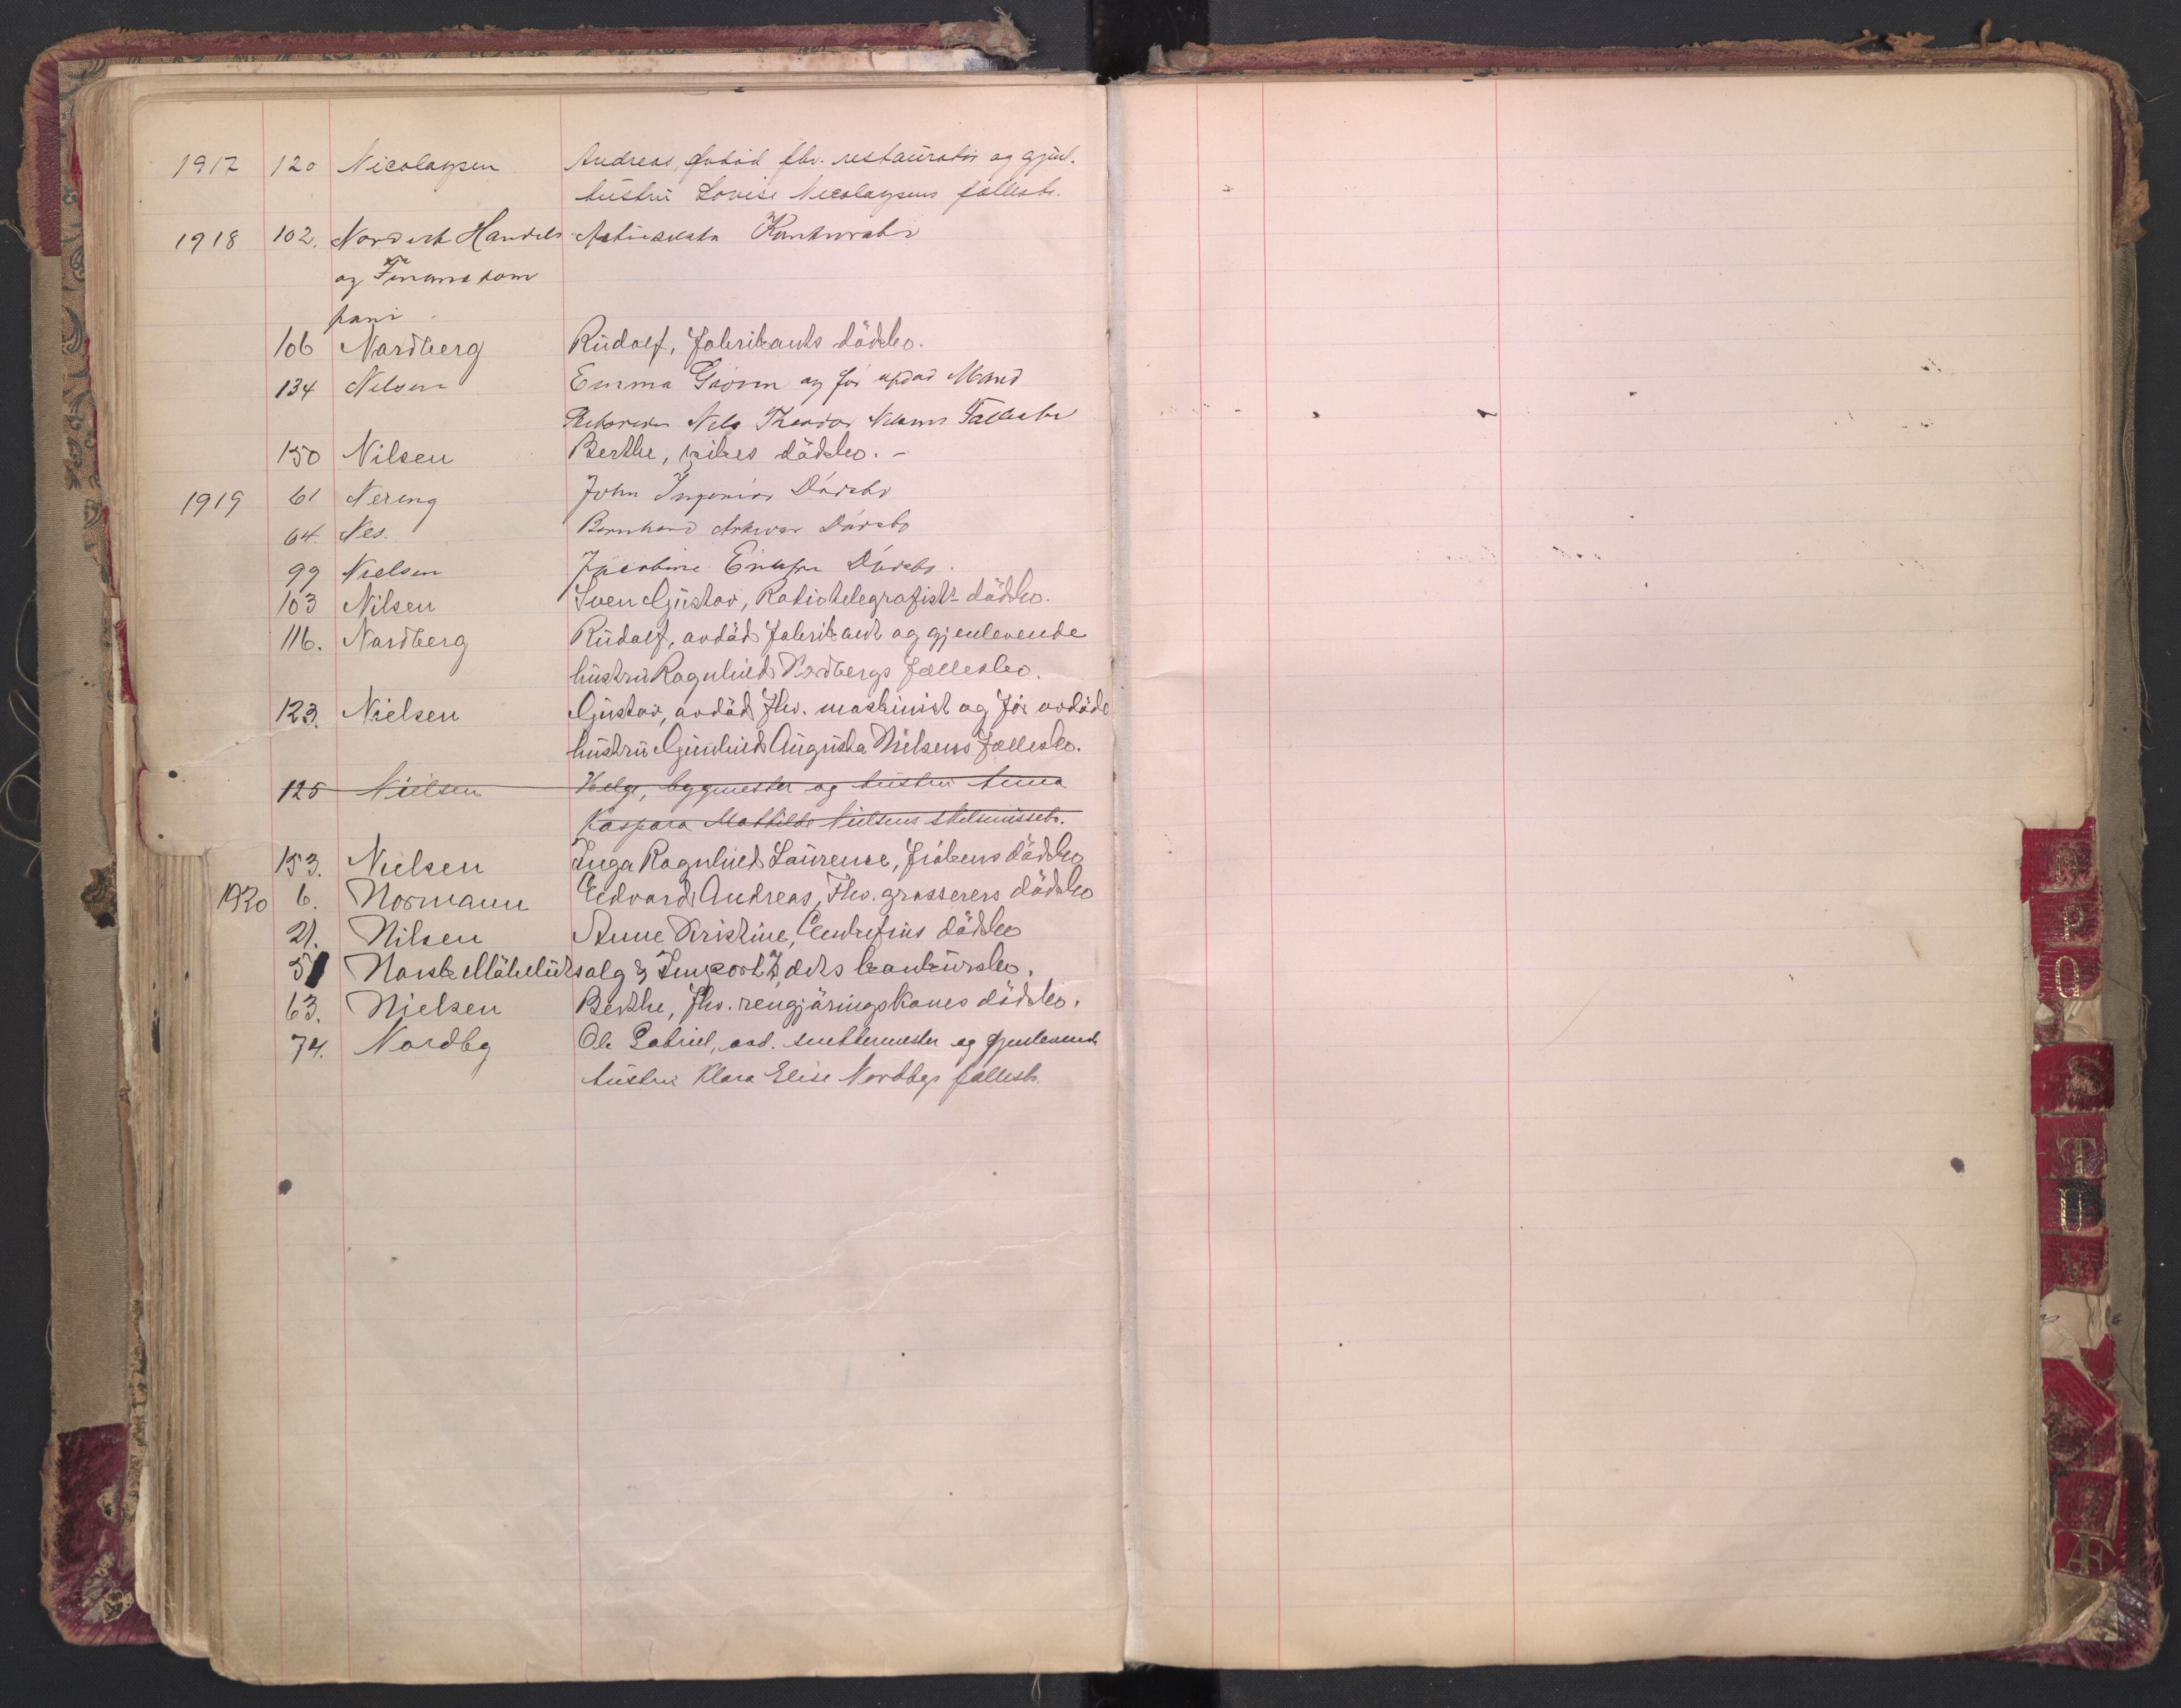 1917 120 Nicolaysen Andreas, avdöd fhv. restauratör og gjenl.
hustru Lovise Nicolaysens fællesb.
1918 102. Nordisk Handels Aktieselsk. Konkursbo
og Finanskom
pani
106 Nordberg Rudolf, fabrikants dödsbo.
134 Nilsen Emma og før afdød Mand
Nils Theodor Nilsens Fællesbo
150 Nilsen Berthe, pikes dödsbo. –
1919 61 Nering John Ingeniør Dødsbo
64. Nes. Bernhard Dødsbo
99 Nielsen Jacobine Enkefru Dødsbo.
103 Nilsen Sven Gustav, Radiotelegrafists dödsbo.
116. Nordberg Rudolf, avdöd fabrikant og gjenlevende
hustru Ragnhild Nordbergs fællesbo.
123. Nielsen Gustav, avdöd fhv. maskinist og før avdöde
hustru Gunhild Augusta Nielsens fællesbo.
125 Nielsen Helge, bygmester og hustru Anna
Kaspara Mathilde Nielsens skilsmisseb.
153. Nielsen Inga Ragnhild Laurense, frökens dödsbo
1920 6. Normann Edvard Andreas, Fhv. grosserers dödsbo
21. Nilsen Anne Kristine, Enkefrus dödsbo
51 Norsk Möbeludsalg & Import A/S, dets konkursbo.
63. Nielsen Berthe, fhv. rengjöringskones dödsbo.
74. Nordby Ole Gabriel, avd. snekkermester og gjenlevende
hustru Klara Elise Nordbys fællesb.
N
P
Q
S
T
U
W
Z
Æ